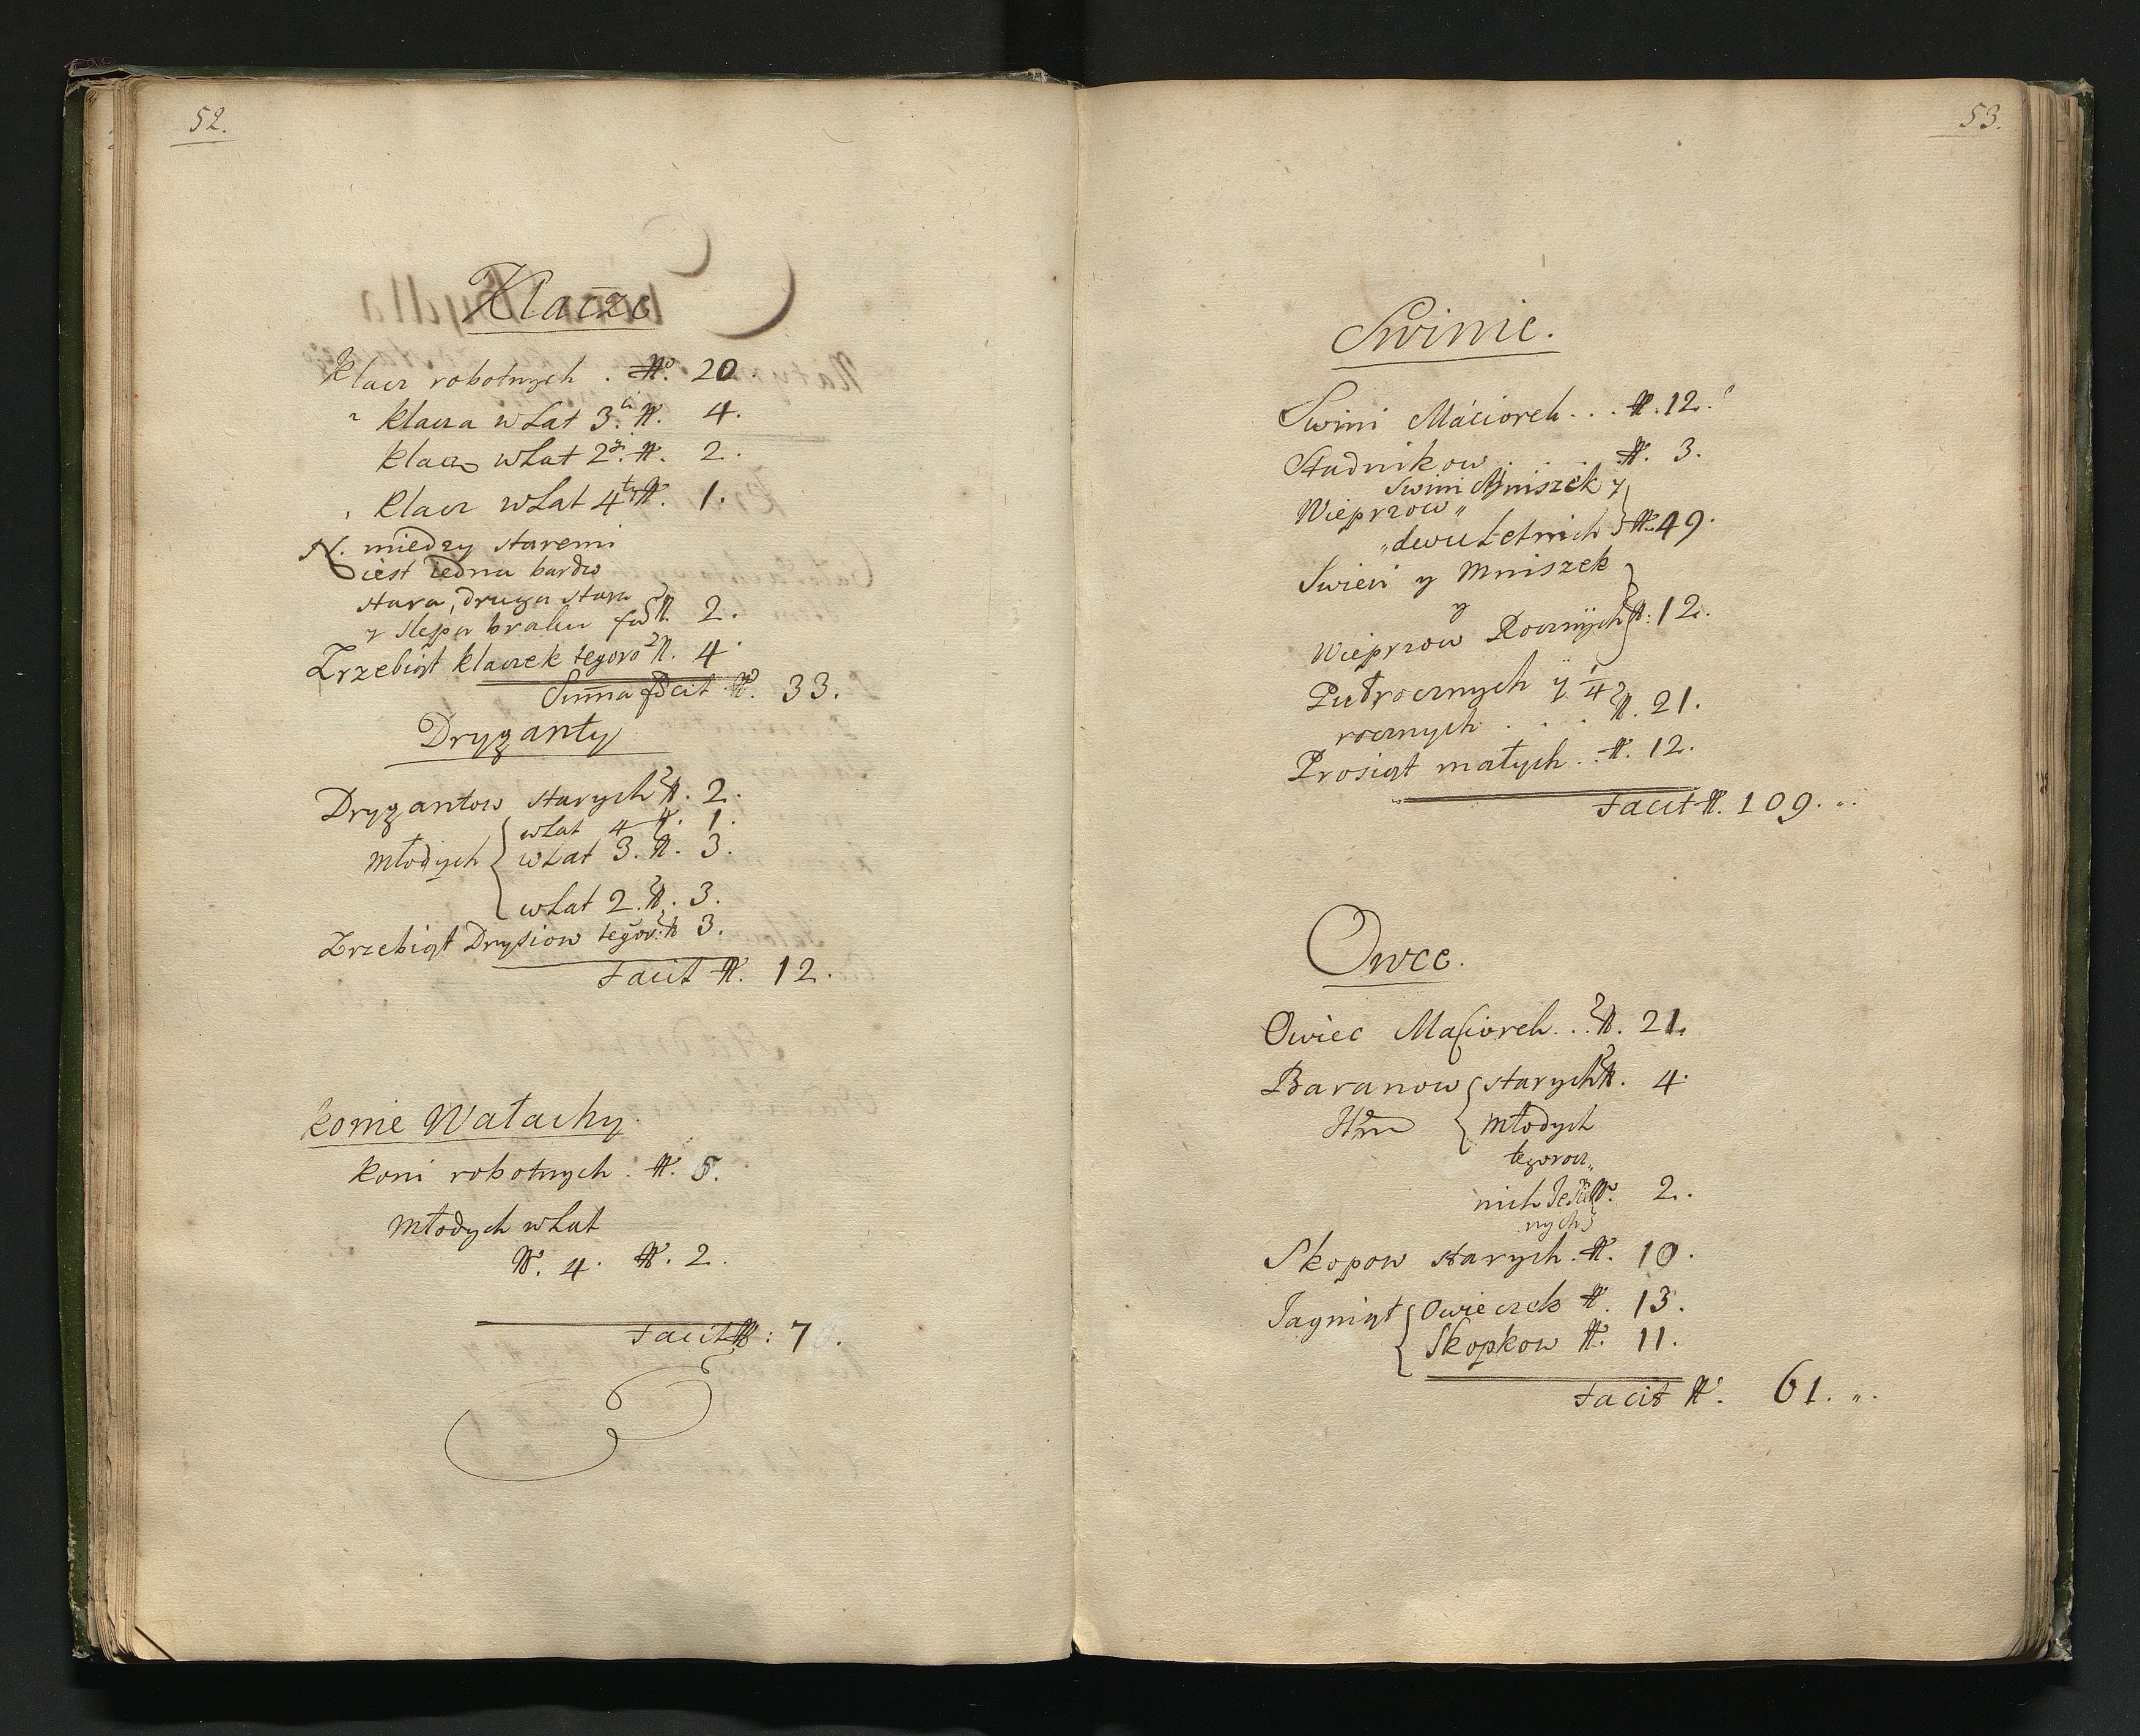 52.
Klacze
Klacz robotnych . N. 20
" klacza w Lat 3. N. 4.
klacz w Lat 2. N. 2.
klacz w Lat 4 N. 1.
N. miedzy staremi
iest iedna bardzo
stara, druga stara
y slepa braku N. 2.
Zrzebiąt klaczek tegoro N. 4
Suma facit N. 33.
Dryganty
Drygantow starych N. 2.
w Lat 4 N. 1.
Młodych w Lat 3. N. 3.
w Lat 2. N. 3.
Zrzebiąt Drysiow tegor: N 3.
Facit N. 12.
konie Wałachy.
koni robotnych . N. 5.
Młodych w Lat
N. 4. N. 2.
Facit N: 7.
53.
Swinie.
Swini Maciorek . . . N. 12.
Stadnikow . . . . N. 3.
Swini Mniszek y
Wieprzow "
" dwu Letnich N. 49.
Swień y Mniszek
y
Wieprzow Rocznÿch N: 12.
Pułrocznych y 1/4
rocznych . . . . N. 21.
Prosiąt małych . . N. 12.
Facit N. 109.
Owce.
Owiec Maciorek . . . N. 21.
Baranow starych N. 4.
Młodych
tegorocz"
nich N. 2.
nych
Skopow starych . N. 10.
Jagniąt Owieczek N. 13.
Skopkow N. 11.
Facit N. 61.